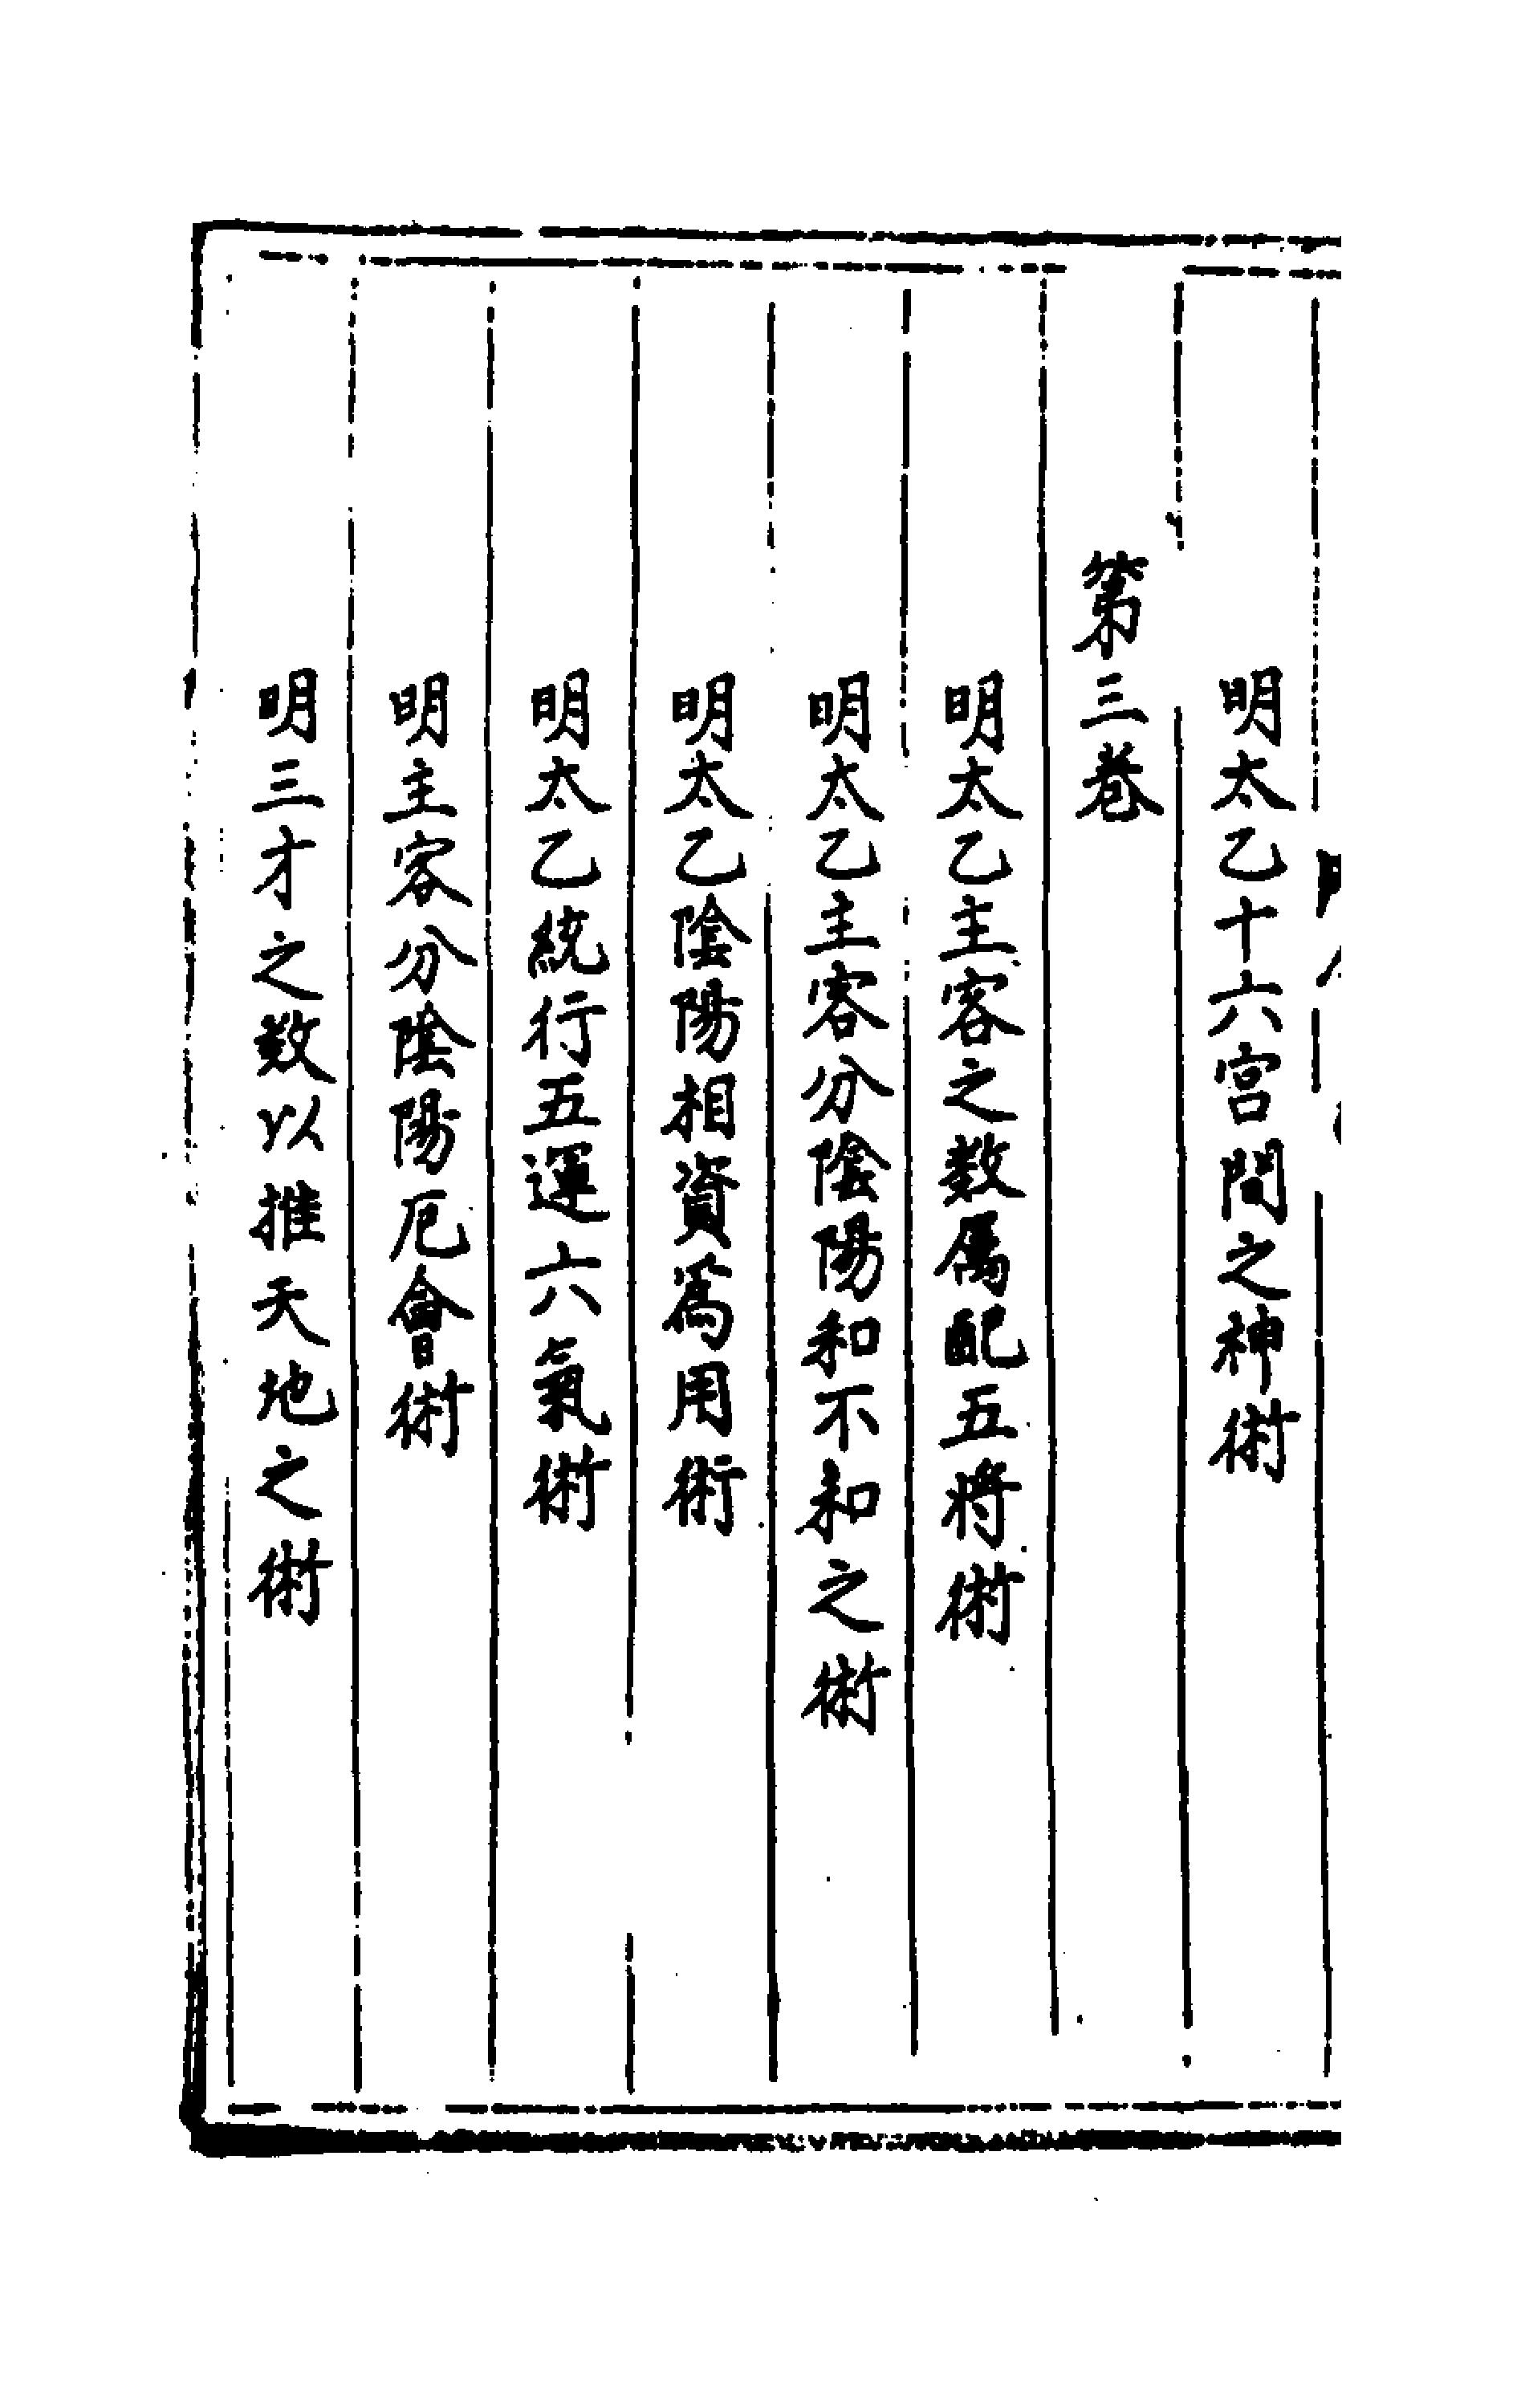 明太乙十六宮間之神術
第三卷
明太乙主客之数屬配五將術
明太乙主客分陰陽和不和之術
明太乙陰陽相資爲用術
明太乙統行五運六氣術
明主客分陰陽厄會術
明三才之数以推天地之術